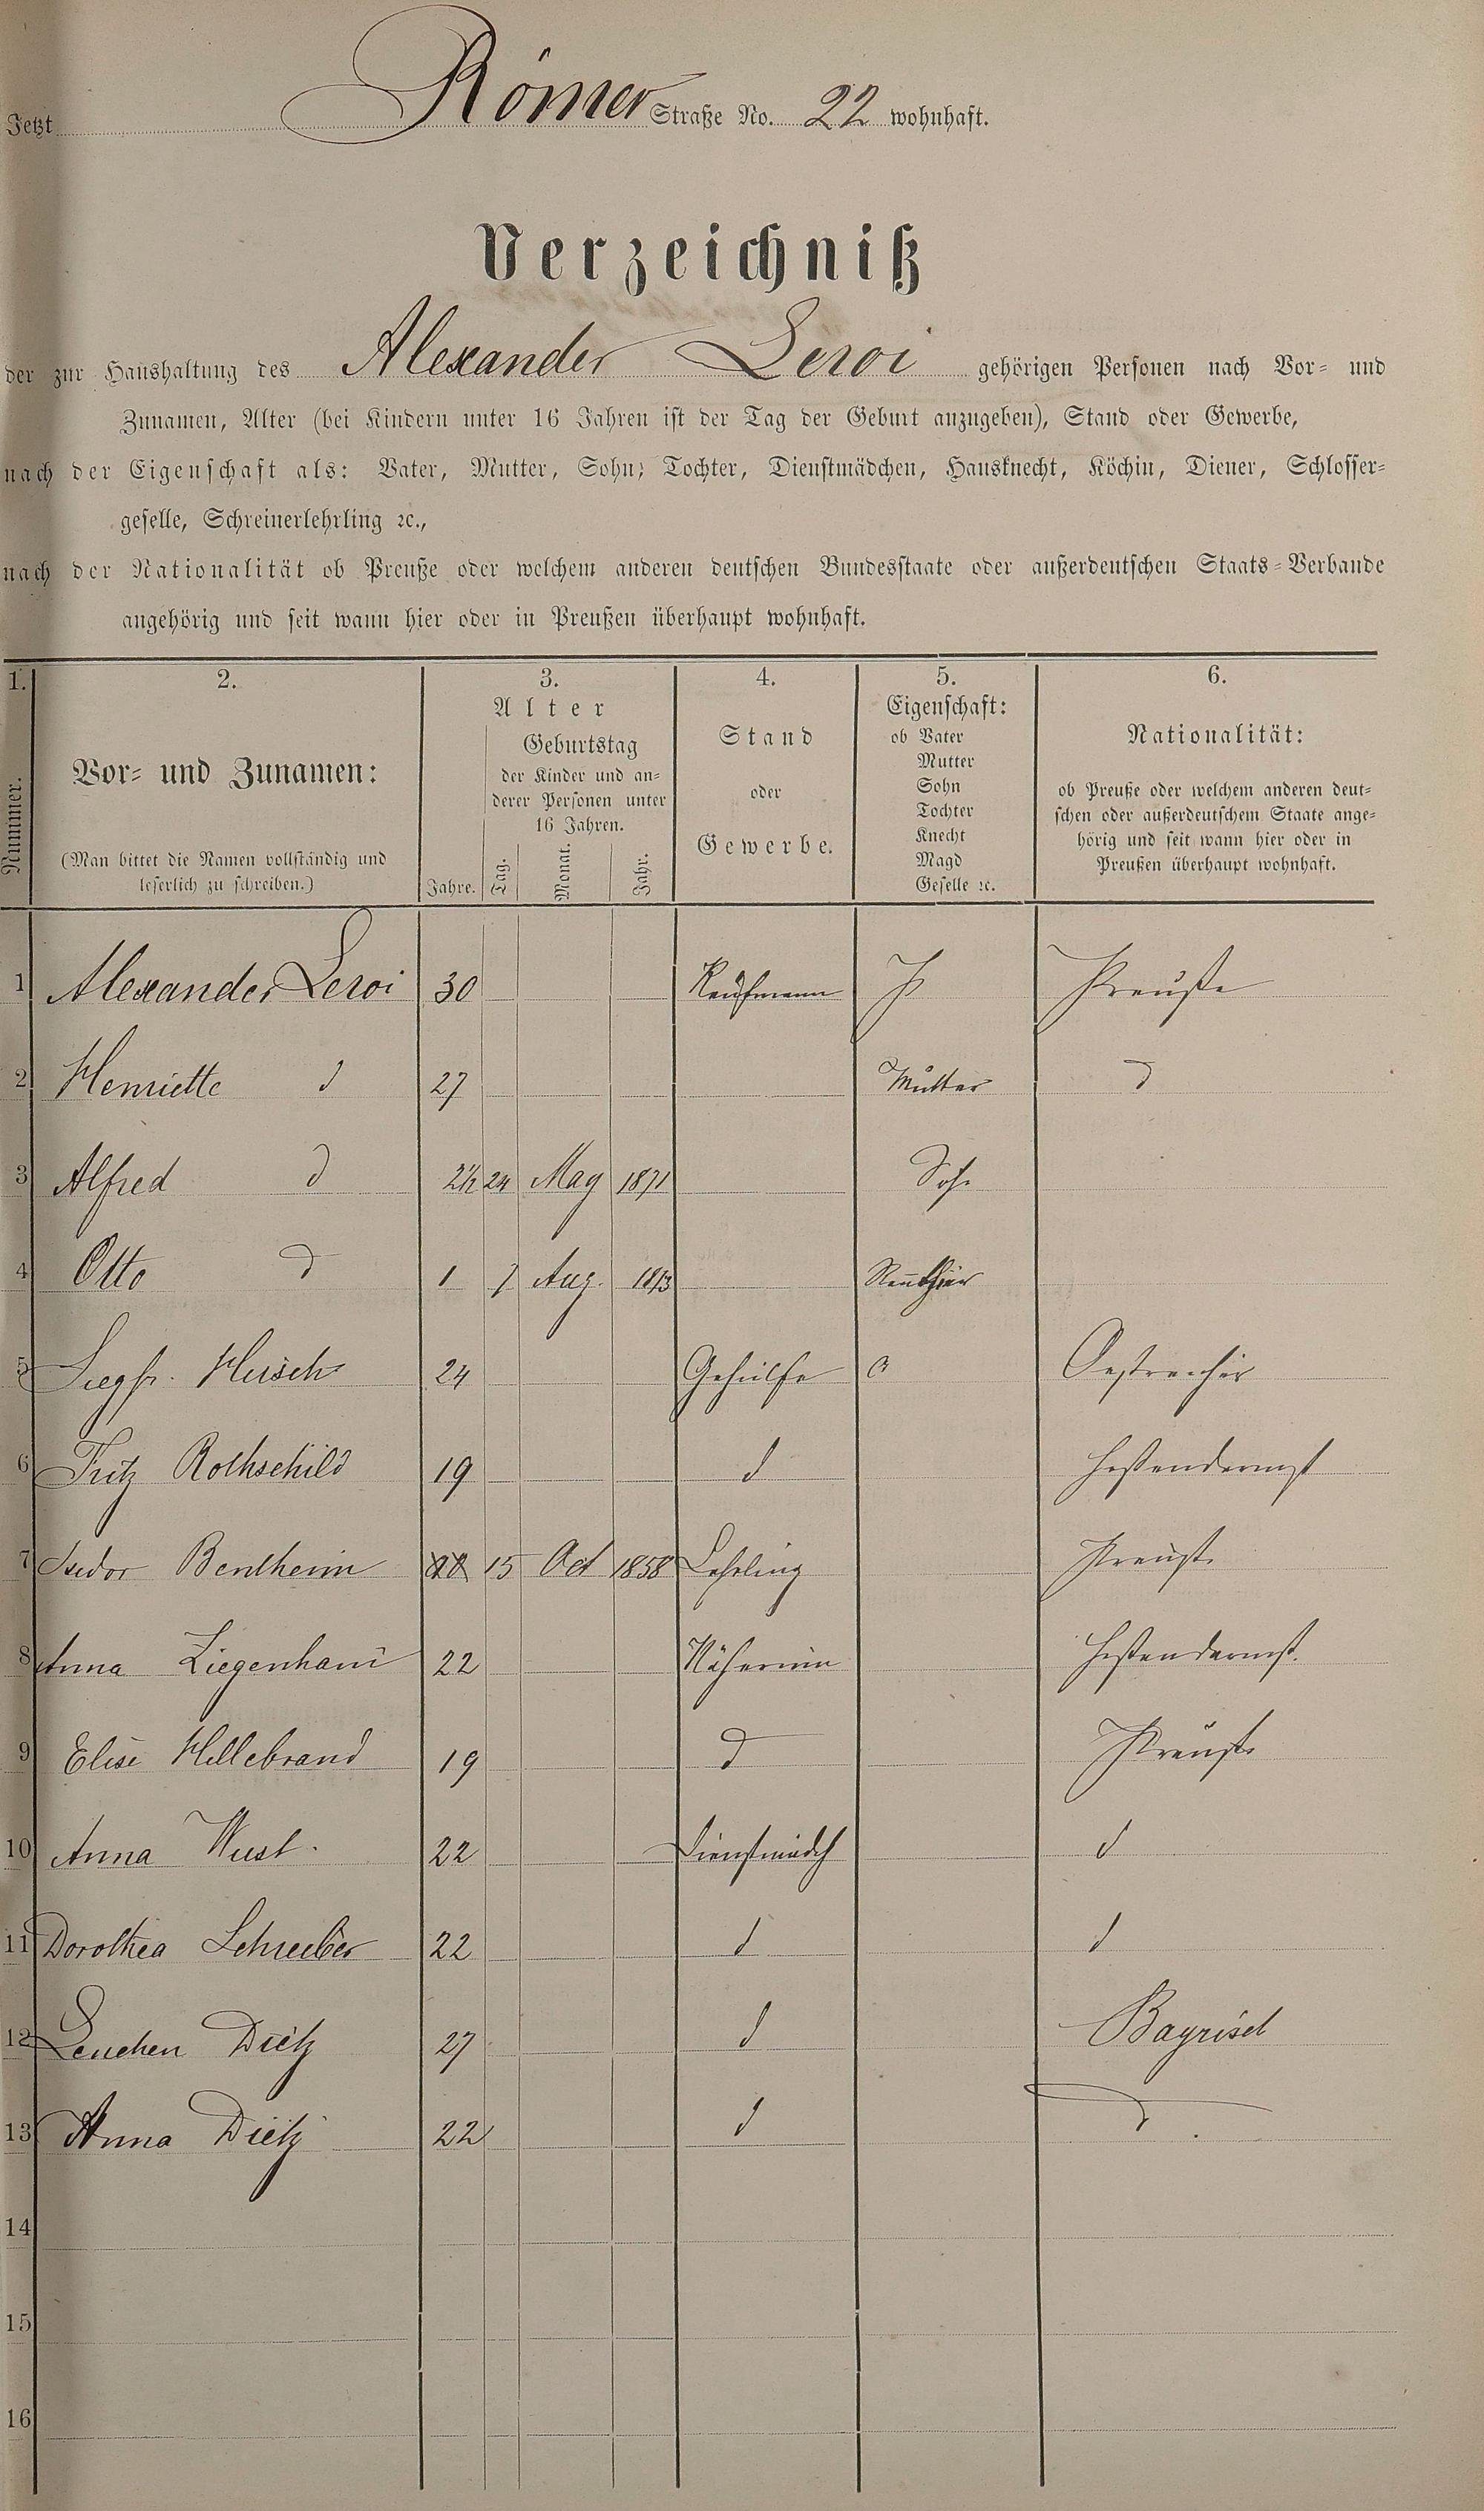 Jetzt Römer Straße No. 22 wohnhaft.
Verzeichniß
der zur Haushaltung des Alexander Leroi gehörigen Personen nach Vor- und
Zunamen, Alter (bei Kindern unter 16 Jahren ist der Tag der Geburt anzugeben), Stand oder Gewerbe,
nach der Eigenschaft als: Vater, Mutter, Sohn, Tochter, Dienstmädchen, Hausknecht, Köchin, Diener, Schlosser-
geselle, Schreinerlehrling ꝛc.,
nach der Nationalität ob Preuße oder welchem anderen deutschen Bundesstaate oder außerdeutschen Staats-Verbande
angehörig und seit wann hier oder in Preußen überhaupt wohnhaft.
1. 2. 3. 4. 5. 6.
Nummer.
Vor- und Zunamen:
(Man bittet die Namen vollständig und
leserlich zu schreiben.)
Alter
Geburtstag
der Kinder und an-
derer Personen unter
16 Jahren.
Jahre. Tag. Monat. Jahr.
Stand
oder
Gewerbe.
Eigenschaft:
ob Vater
Mutter
Sohn
Tochter
Knecht
Magd
Geselle ꝛc.
Nationalität:
ob Preuße oder welchem anderen deut-
schen oder außerdeutschem Staate ange-
hörig und seit wann hier oder in
Preußen überhaupt wohnhaft.
1 Alexander Leroi 30 Kaufmann Preuße
2 Henriette d 27 Mutter d
3 Alfred d 2½ 24 May 1871 Sohn
4 Otto d 1 7 Aug. 1873
5 Siegfr. Hirsch 24 Gehülfe Oestreicher
6 Fritz Rothschild 19 d Hessendarmst
7 Isidor Bentheim 15 Oct 1858 Lehrling Preuße
8 Anna Ziegenhain 22 Näherinn Hessendarmst.
9 Elise Hillebrand 19 d Preuße
10 Anna Wust 22 Dienstmädch d
11 Dorothea Schreiber 22 d d
12 Lenchen Dietz 27 d Bayrisch
13 Anna Dietz 22 d d
14
15
16